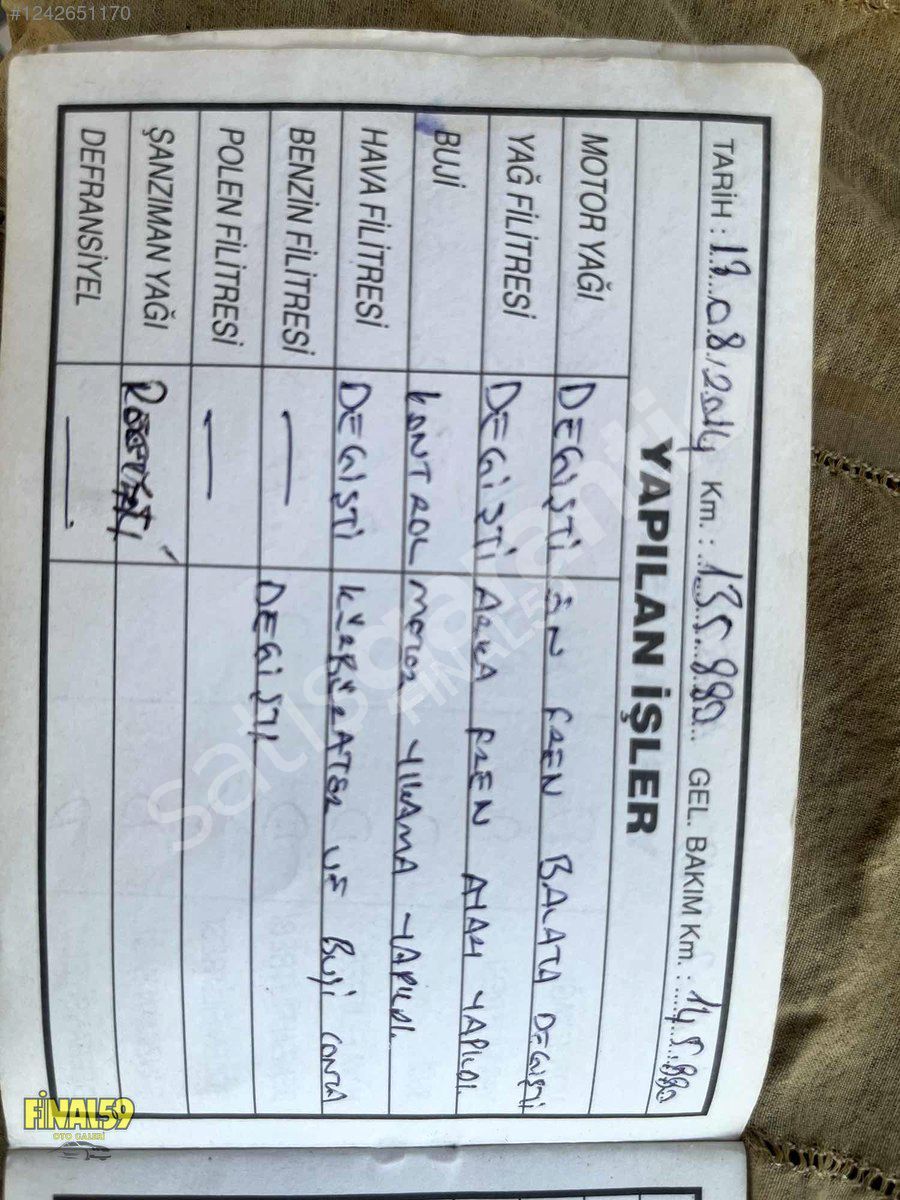 #1242651170
TARİH : 13.08.2014 Km. : 135.880 GEL. BAKIM Km. : 145.880
YAPILAN İŞLER
MOTOR YAĞI DEGİŞTİ ÖN FREN BALATA DEGİŞTİ
YAĞ FİLİTRESİ DEGİŞTİ ARKA FREN AYAR YAPILDI.
BUJİ KONTROL MOTOR YIKAMA YAPILDI.
HAVA FİLİTRESİ DEGİŞTİ KÜRBÜRATÖR VE BUJİ CONTA
BENZİN FİLİTRESİ — DEGİŞTİ
POLEN FİLİTRESİ —
ŞANZIMAN YAĞI
DEFRANSİYEL —
satisgaranti
FINAL59
FİNAL59
OTO GALERİ